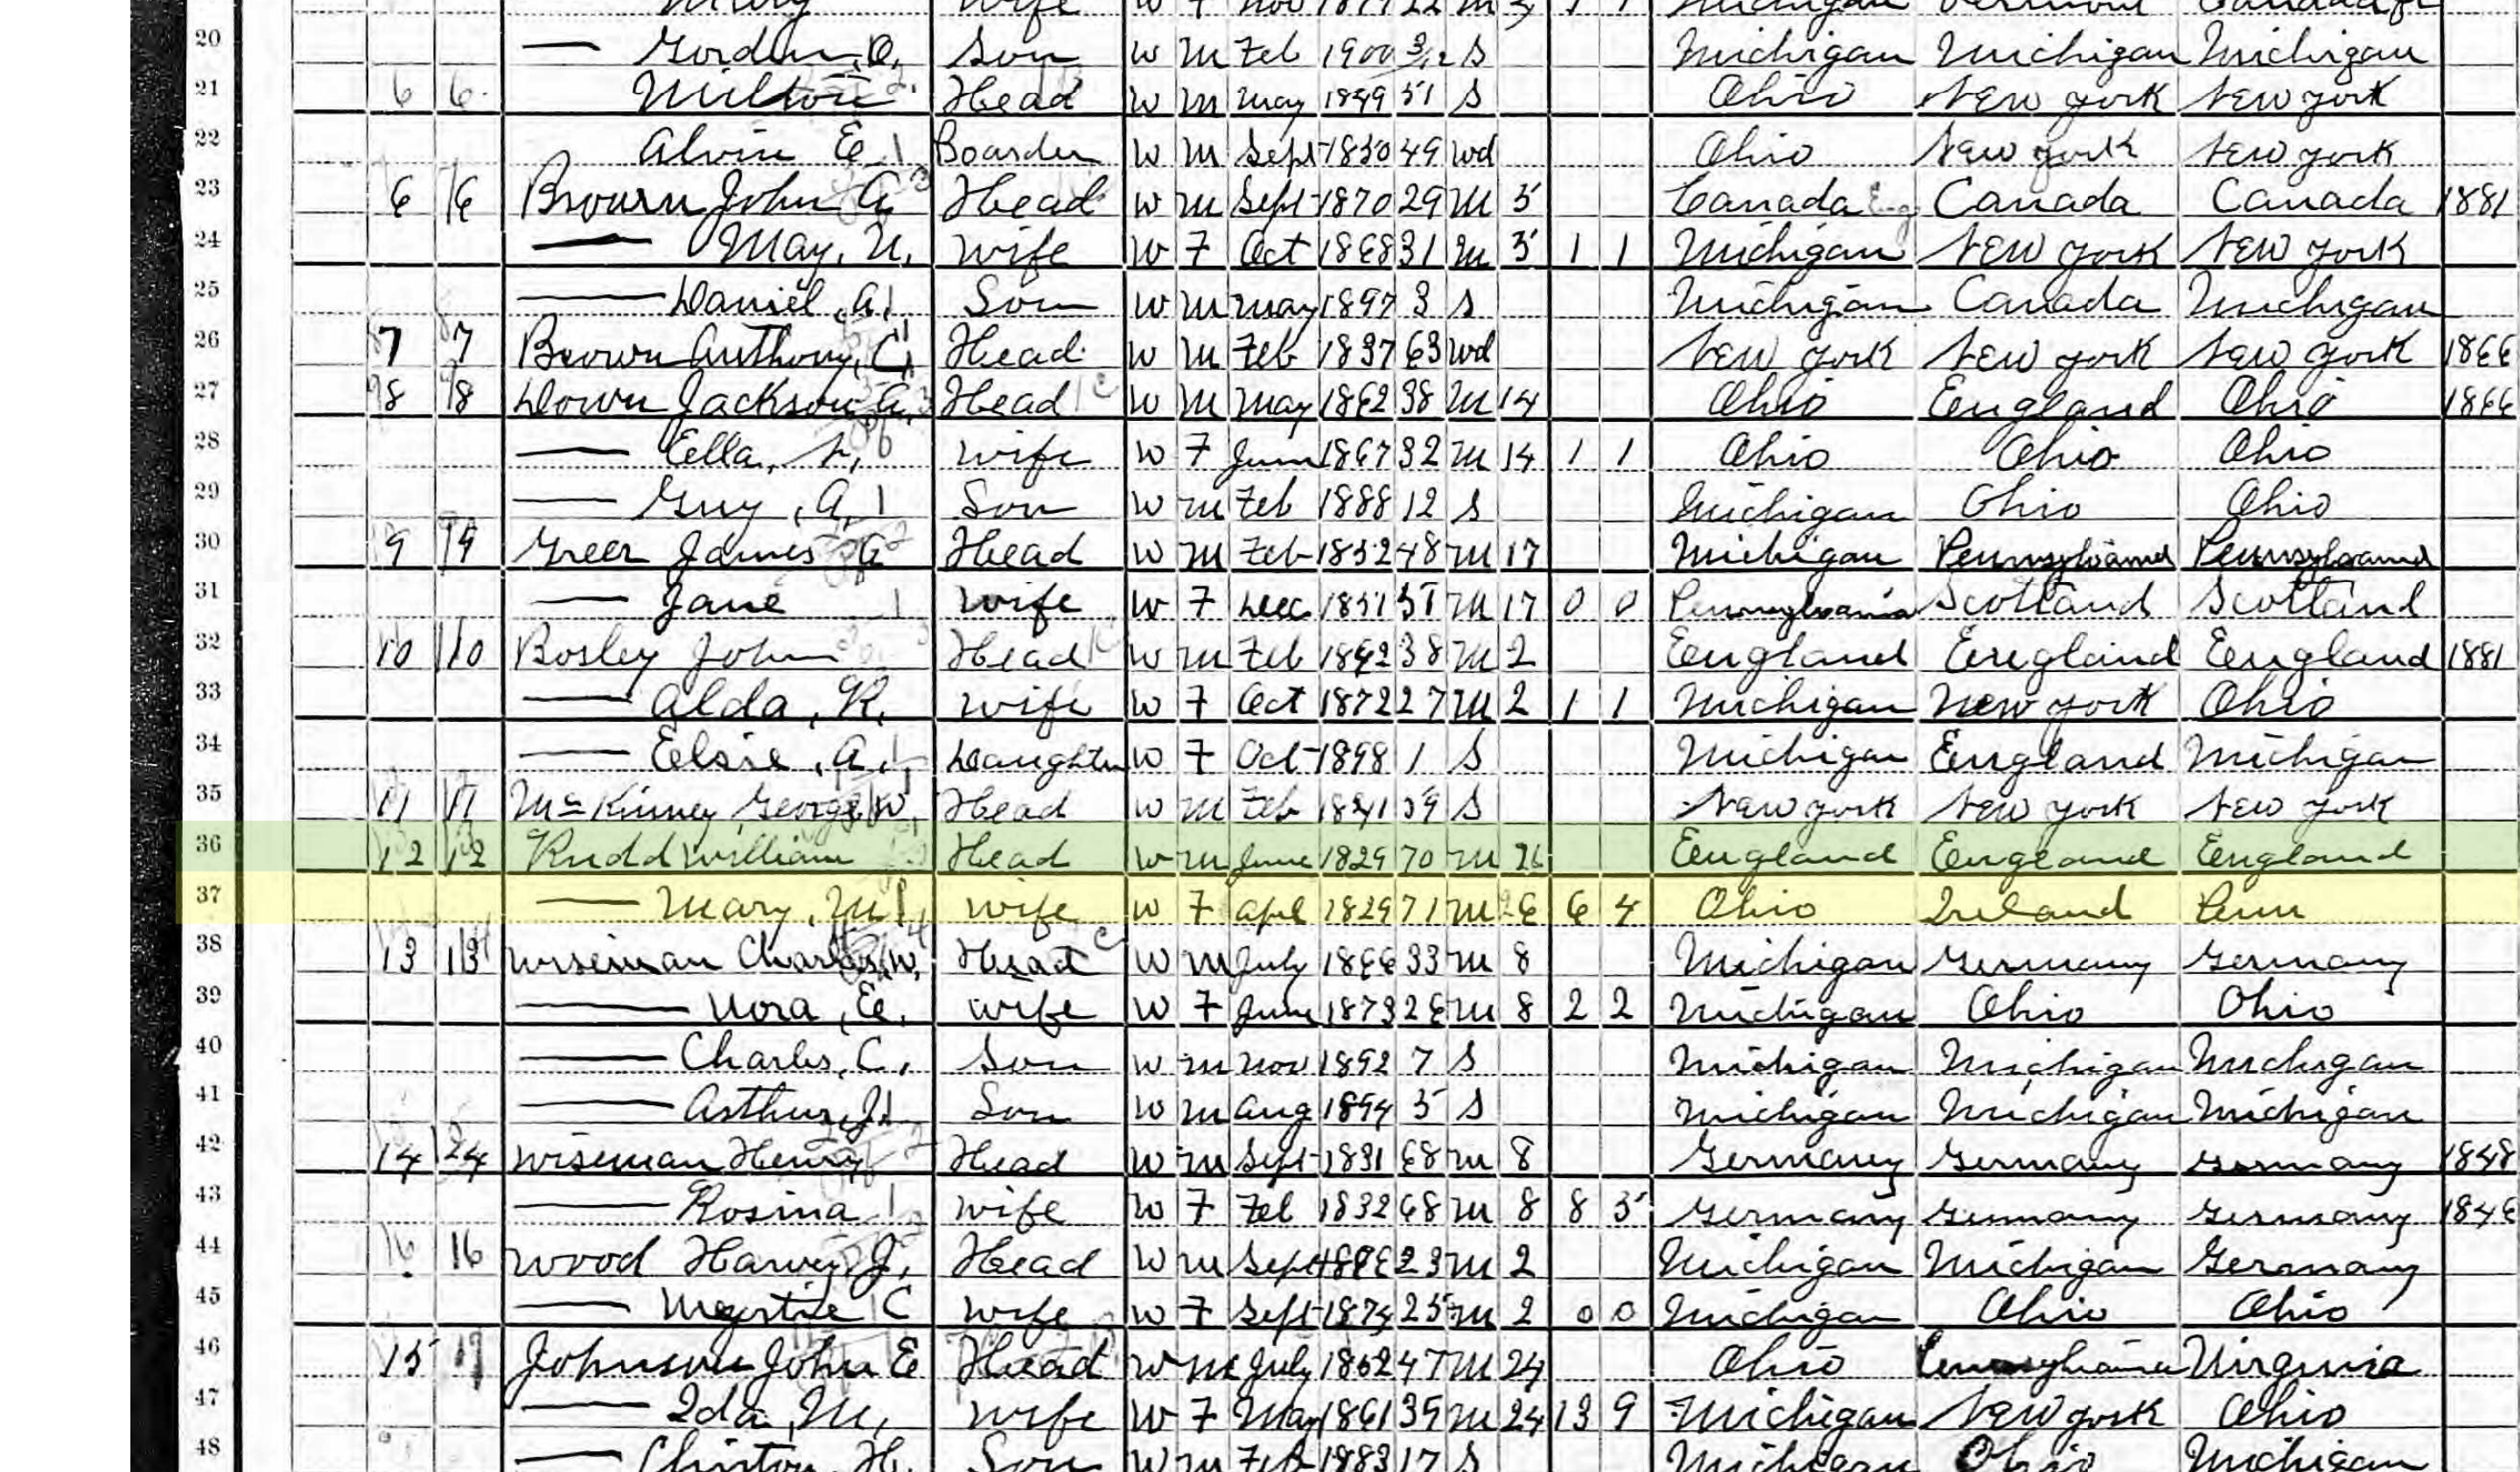 Mary wife W F Nov 1877 22 M 1 1 Michigan Vermont
20 — Gordon, O. Son W M Feb 1900 3/12 S Michigan Michigan Michigan
21 6 6 Milton Head W M May 1849 51 S Ohio New York New York
22 Alvin E Boarder W M Sept 1850 49 Wd Ohio New York New York
23 6 6 Brown John A Head W M Sept 1870 29 M 5 Canada Eng Canada Canada 1881
24 — May, N. Wife W F Oct 1868 31 M 5 1 1 Michigan New York New York
25 — Daniel, A. Son W M May 1897 3 S Michigan Canada Michigan
26 7 7 Brown Anthony, C, Head W M Feb 1837 63 Wd New York New York New York 1866
27 8 8 Down Jackson A. Head W M May 1862 38 M 14 Ohio England Ohio 1866
28 — Ella, wife W F June 1867 32 M 14 1 1 Ohio Ohio Ohio
29 — Guy, A, Son W M Feb 1888 12 S Michigan Ohio Ohio
30 9 9 Greer James A Head W M Feb 1852 48 M 17 Michigan Pennsylvania Pennsylvania
31 — Jane wife W F Dec 1851 M 17 0 0 Pennsylvania Scotland Scotland
32 10 10 Bosley John Head W M Feb 1862 38 M 2 England England England 1881
33 — Alda, R. Wife W F Oct 1872 27 M 2 1 1 Michigan New York Ohio
34 — Elsie, A. Daughter W F Oct 1898 1 S Michigan England Michigan
35 11 11 McKinney George W. Head W M Feb 1841 59 S New York New York New York
36 12 12 Rudd William Head W M June 1829 70 M 26 England England England
37 — Mary, M. wife W F Apl 1829 71 M 26 6 4 Ohio Ireland Penn
38 13 13 Wiseman Charles W. Head W M July 1866 33 M 8 Michigan Germany Germany
39 — Nora, E. wife W F June 1873 26 M 8 2 2 Michigan Ohio Ohio
40 — Charles, C. Son W M Nov 1892 7 S Michigan Michigan Michigan
41 — Arthur, J. Son W M Aug 1894 5 S Michigan Michigan Michigan
42 14 Wiseman Henry Head W M Sept 1831 68 M 8 Germany Germany Germany 1848
43 — Rosina wife W F Feb 1832 68 M 8 8 5 Germany Germany Germany 1846
44 16 16 Wood Harvey J, Head W M Sept 1876 23 M 2 Michigan Michigan Germany
45 — Myrtie C wife W F Sept 1874 25 M 2 0 0 Michigan Ohio Ohio
46 15 Johnson John E Head W M July 1852 47 M 24 Ohio Pennsylvania Virginia
47 — Ida, M, wife W F May 1861 39 M 24 13 9 Michigan New York Ohio
48 — Clinton, H, Son W M Feb 1883 17 S Michigan Ohio Michigan